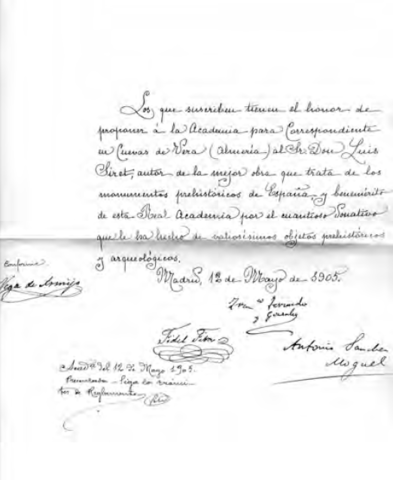 Los que suscriben tienen el honor de
proponer á la Academia para Correspondiente
en Cuevas de Vera (Almería) al Sr. Don Luis
Siret, autor de la mejor obra que trata de los
monumentos prehistóricos de España, y benemérito
de esta Real Academia por el cuantioso Donativo
que le ha hecho de valiosísimos objetos prehistóricos
y arqueológicos.
Madrid, 12 de Mayo de 1905.
Conforme
Vega de Armijo
Fernando
y González
Fidel Fita
Antonio Sanchez
Moguel
Acad.ª del 12 de Mayo 1905.
Siga los trámi
tes de Reglamento